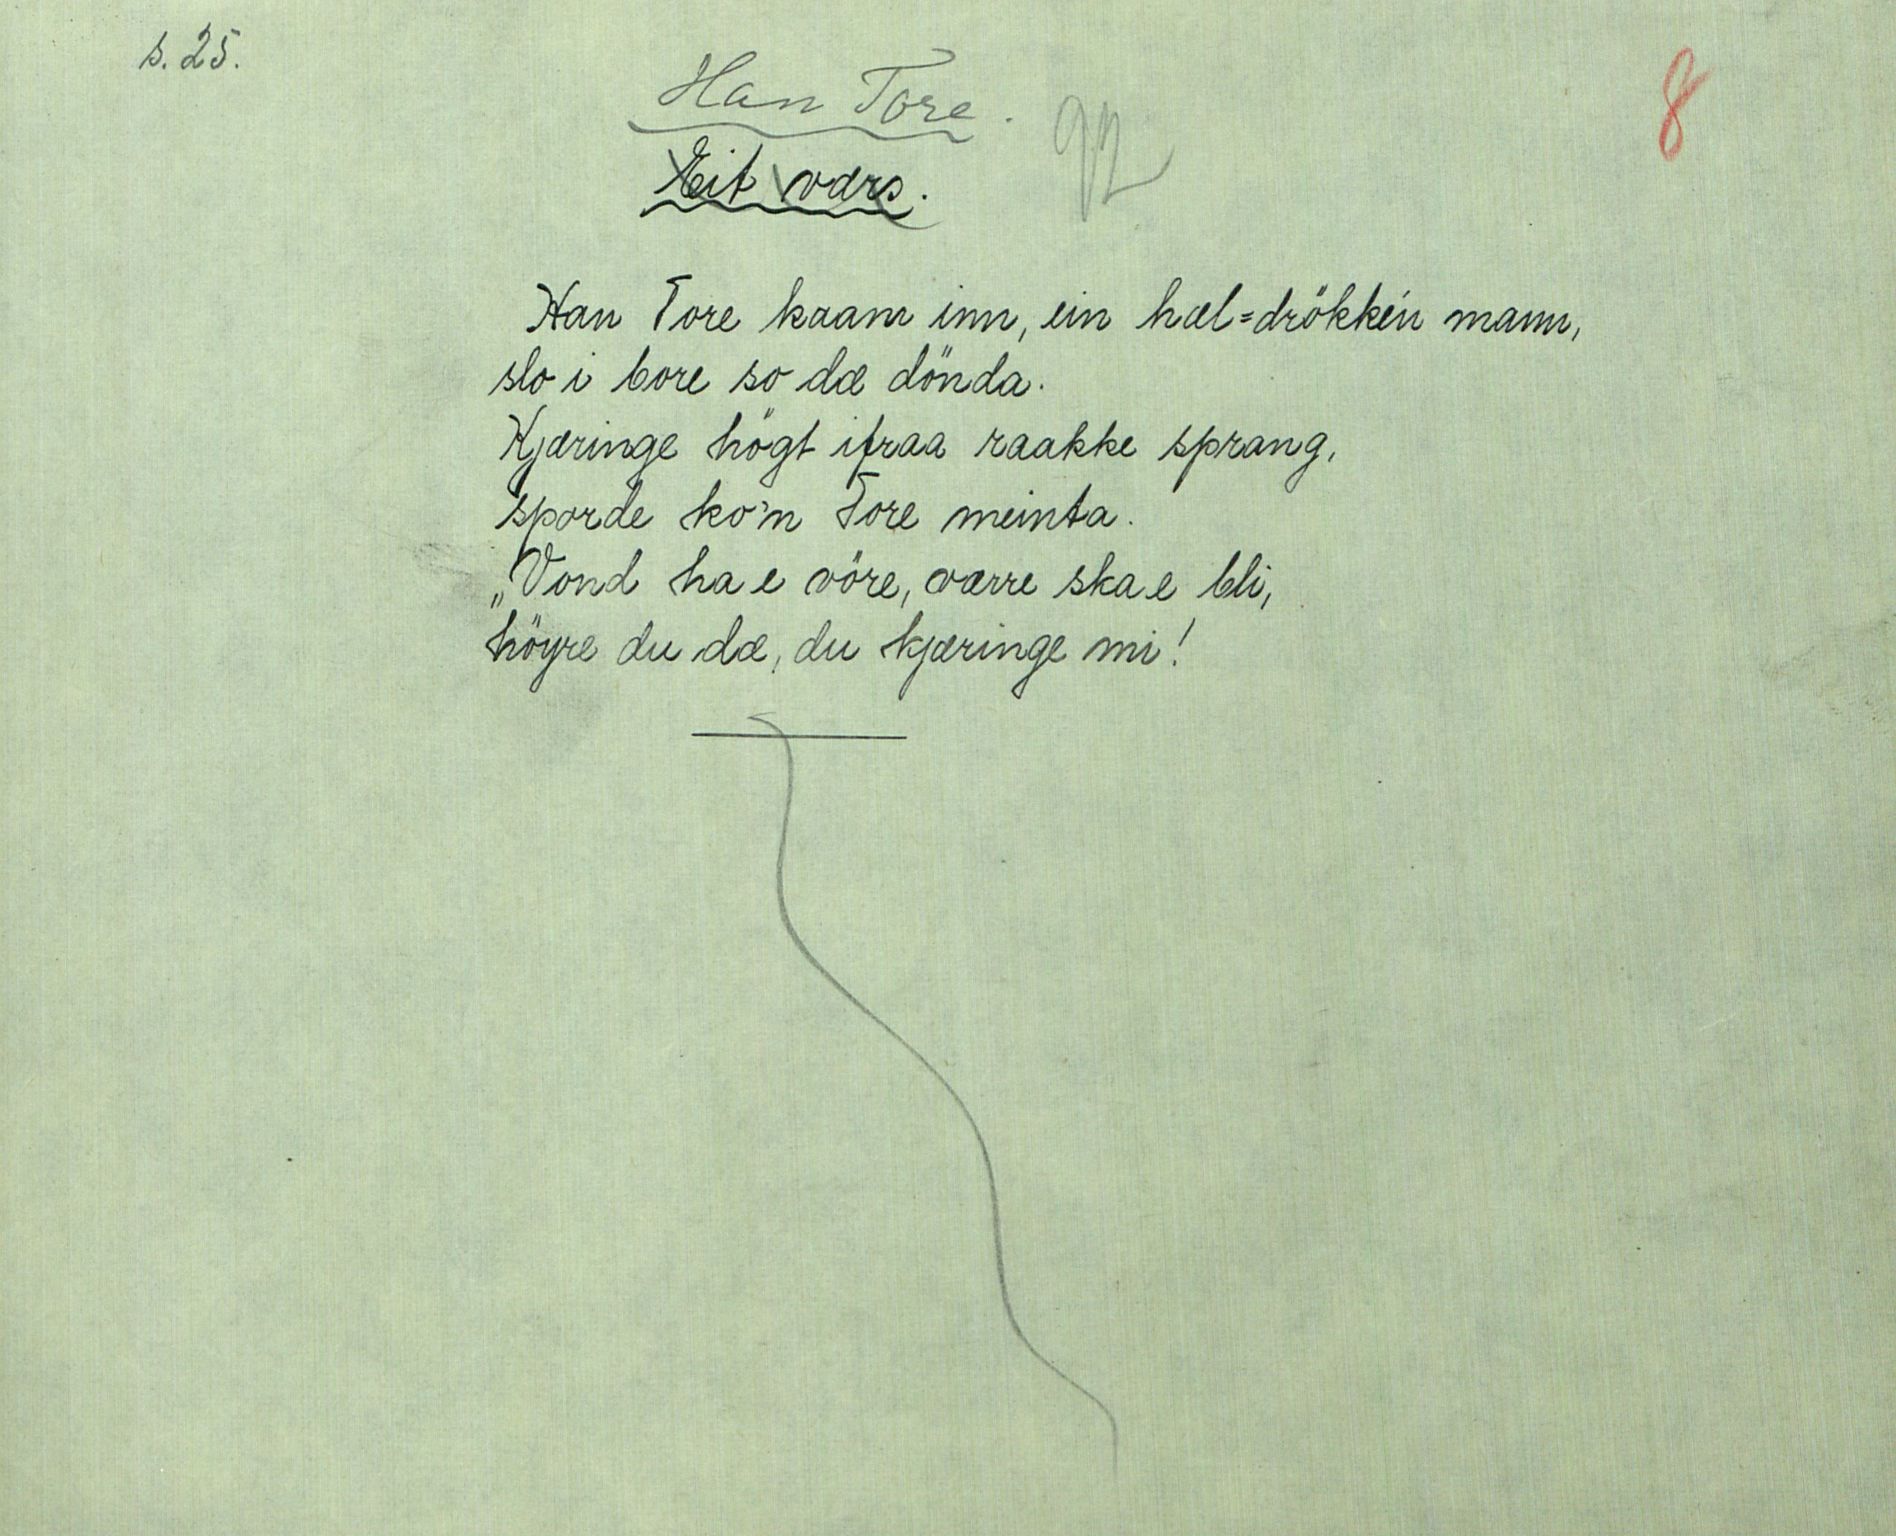 s. 25.
8
Han Tore.
92
Eitværs.
Han Tore kaam inn, ein hæl=drökken mann,
slo i bore so dæ dönda.
Kjæringe högt ifraa raakke sprang,
sporde ko'n Tore meinta.
„Vond ha e vöre, værre ska e bli,
höyre du dæ, du kjæringe mi!